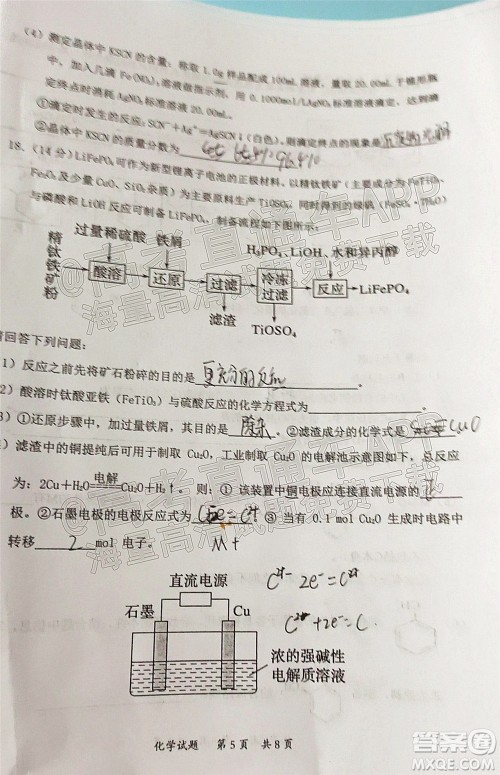 (4) 测定晶体中 KSCN 的含量：称取 1.0g 样品配成 100mL 溶液，量取 20.00mL 于锥形瓶
中，加入几滴 Fe(NO₃)₃ 溶液做指示剂，用 0.1000mol/L AgNO₃ 标准溶液滴定，达到滴
定终点时消耗 AgNO₃ 标准溶液 20.00mL。
①滴定时发生的反应：SCN⁻+Ag⁺=AgSCN↓(白色)，则滴定终点的现象是
②晶体中 KSCN 的质量分数为 96.4%
18. (14 分) LiFePO₄ 可作为新型锂离子电池的正极材料，以精钛铁矿(主要成分为 FeTiO₃、
Fe₂O₃ 及少量 CuO、SiO₂ 杂质) 为主要原料生产 TiOSO₄，同时得到的绿矾(FeSO₄·7H₂O)
与磷酸和 LiOH 反应可制备 LiFePO₄，制备流程如下图所示：
过量稀硫酸 铁屑 H₃PO₄、LiOH、水和异丙醇
精钛铁矿粉 酸溶 还原 过滤 冷冻过滤 反应 LiFePO₄
滤渣 TiOSO₄
请回答下列问题：
1) 反应之前先将矿石粉碎的目的是 更充分的反应 。
2) 酸溶时钛酸亚铁(FeTiO₃)与硫酸反应的化学方程式为 。
3) ①还原步骤中，加过量铁屑，其目的是 除杂 。②滤渣成分的化学式是 CuO
) 滤渣中的铜提纯后可用于制取 Cu₂O，工业制取 Cu₂O 的电解池示意图如下，总反应
为：2Cu＋H₂O 电解 Cu₂O＋H₂↑。则：① 该装置中铜电极应连接直流电源的 正
极。②石墨电极的电极反应式为 ③ 当有 0.1 mol Cu₂O 生成时电路中
转移 2 mol 电子。
直流电源
石墨 Cu
浓的强碱性
电解质溶液
化学试题 第 5 页 共 8 页
@高考直通车APP
海量高清试题免费下载
@高考直通车APP
海量高清试题免费下载
答案圈
MXQE.COM